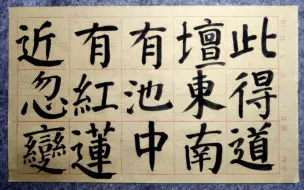 此得道
壇東南
有池中
有紅蓮
近忽變